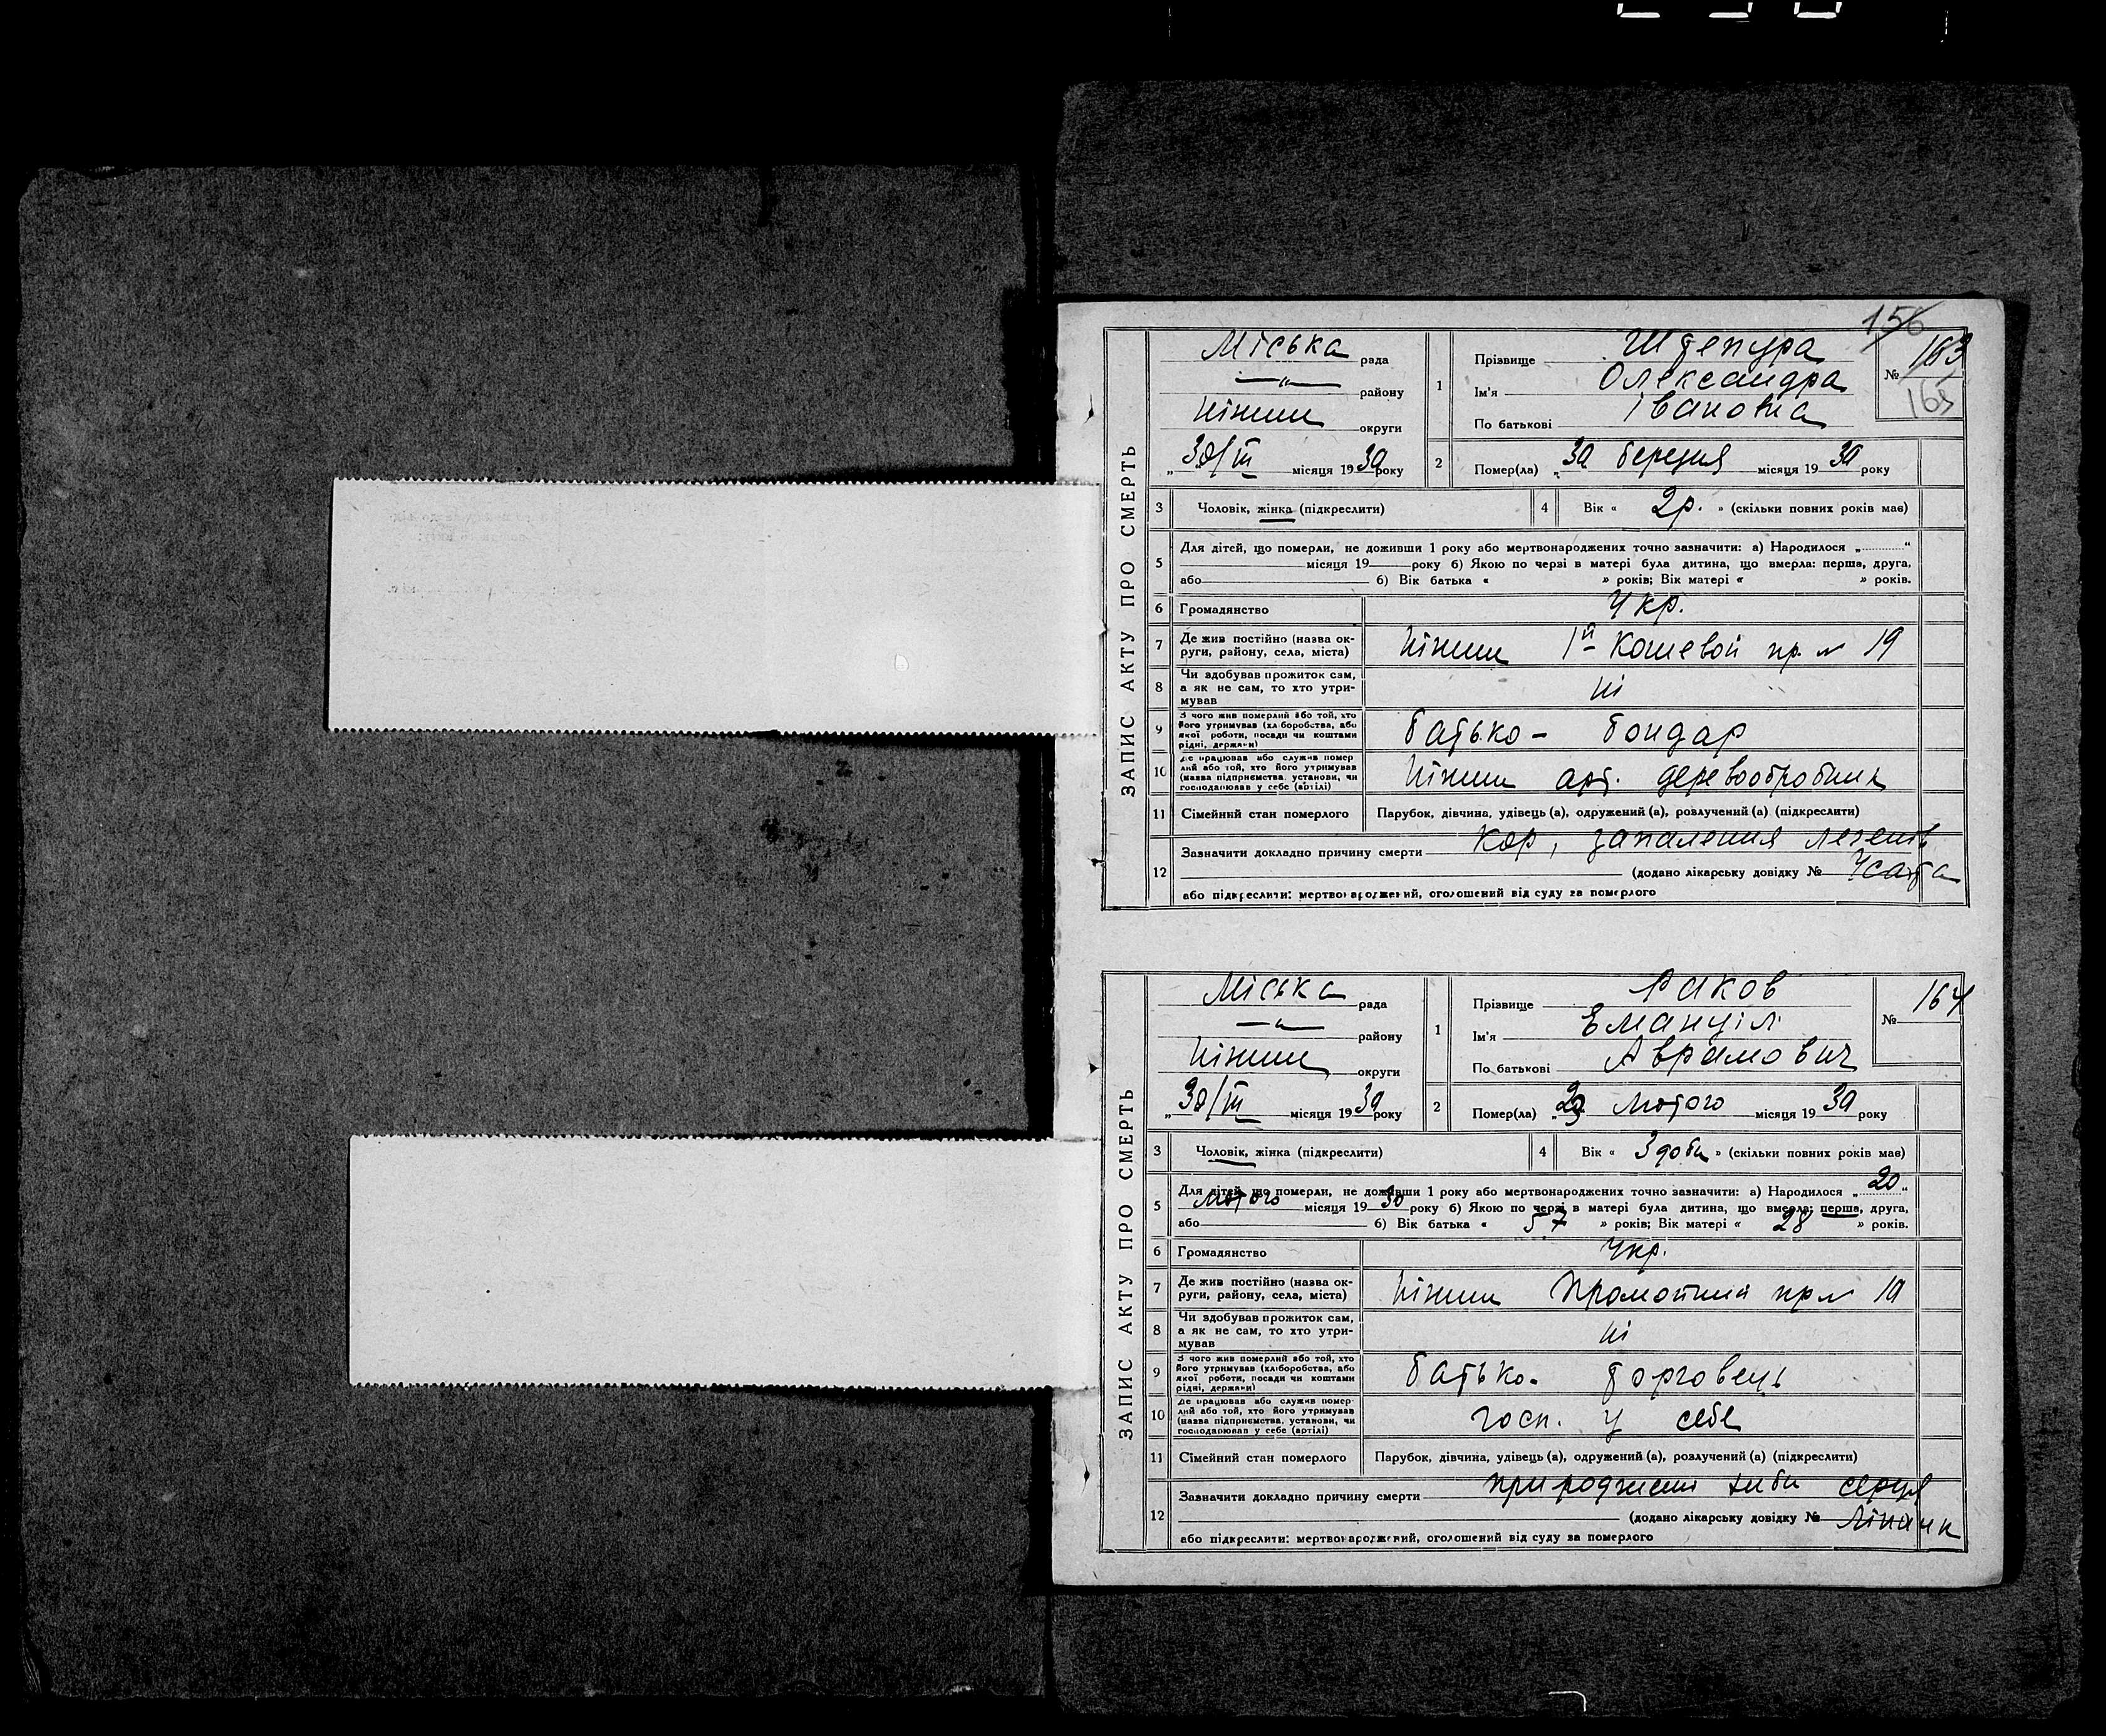 156
ЗАПИС АКТУ ПРО СМЕРТЬ
Міська рада
—"— району
Ніжин округи
„30/III місяця 1930 року
1 Прізвище Штепура
Ім'я Олександра
По батькові Івановна
№ 163
165
2 Помер(ла) „30 березня місяця 1930 року
3 Чоловік, жінка (підкреслити)
4 Вік « 2р. » (скільки повних років мав)
5 Для дітей, що померли, не доживши 1 року або мертвонароджених точно зазначити: а) Народилося „..........“
місяця 19 року б) Якою по черзі в матері була дитина, що вмерла: перша, друга,
або б) Вік батька « » років; Вік матері « » років.
6 Громадянство Укр.
7 Де жив постійно (назва округи, району, села, міста) Ніжин 1й Кошевой пр. № 19
8 Чи здобував прожиток сам, а як не сам, то хто утримував ні
9 З чого жив померлий або той, хто його утримував (хліборобства, або якої роботи, посади чи коштами рідні, держави) батько - бондар
10 Де працював або служив померлий або той, хто його утримував (назва підприємства, установи, чи господарював у себе (артілі) Ніжин арт. деревообробник
11 Сімейний стан померлого Парубок, дівчина, удівець (а), одружений (а), розлучений (а) (підкреслити)
12 Зазначити докладно причину смерти Кор, запалення легенів
(додано лікарську довідку № Усата
або підкреслити: мертвонароджений, оголошений від суду за померлого
ЗАПИС АКТУ ПРО СМЕРТЬ
Міська рада
—"— району
Ніжин округи
„30/III місяця 1930 року
1 Прізвище Раков
Ім'я Емануіл
По батькові Аврамович
№ 164
2 Помер(ла) „23 лютого місяця 1930 року
3 Чоловік, жінка (підкреслити)
4 Вік « 3 доби » (скільки повних років мав)
5 Для дітей, що померли, не доживши 1 року або мертвонароджених точно зазначити: а) Народилося „20“
лютого місяця 1930 року б) Якою по черзі в матері була дитина, що вмерла: перша, друга,
або б) Вік батька « 57 » років; Вік матері « 28 » років.
6 Громадянство Укр.
7 Де жив постійно (назва округи, району, села, міста) Ніжин пр № 10
8 Чи здобував прожиток сам, а як не сам, то хто утримував ні
9 З чого жив померлий або той, хто його утримував (хліборобства, або якої роботи, посади чи коштами рідні, держави) батько - торговець
10 Де працював або служив померлий або той, хто його утримував (назва підприємства, установи, чи господарював у себе (артілі) госп. у себе
11 Сімейний стан померлого Парубок, дівчина, удівець (а), одружений (а), розлучений (а) (підкреслити)
12 Зазначити докладно причину смерти природжені хиби серця
(додано лікарську довідку №
або підкреслити: мертвонароджений, оголошений від суду за померлого